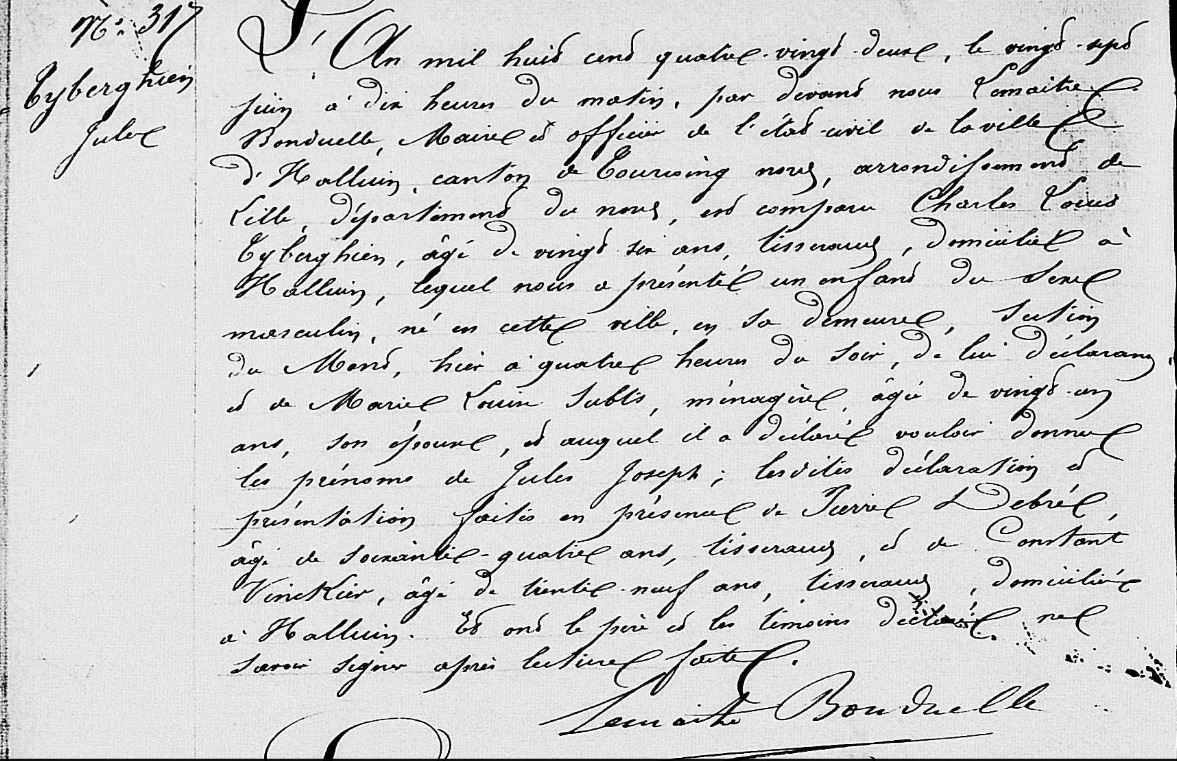 N° 317
Tyberghien
Jules
L'An mil huit cent quatre-vingt-deux, le vingt-sept
juin à dix heures du matin, par devant nous Lemaitre
Bonduelle, Maire et officier de l'état-civil de la ville
d'Halluin, canton de Tourcoing nord, arrondissement de
Lille, département du nord, est comparu Charles Louis
Tyberghien, âgé de vingt six ans, tisserand, domicilié à
Halluin, lequel nous a présenté un enfant du sexe
masculin, né en cette ville, en sa demeure, section
du Mont, hier à quatre heures du soir, de lui déclarant,
et de Marie Louise, ménagère, âgée de vingt-un
ans, son épouse, et auquel il a déclaré vouloir donner
les prénoms de Jules Joseph; lesdites déclaration et
présentation faites en présence de Pierre Debré,
âgé de soixante-quatre ans, tisserand, et de Constant
Vinckier, âgé de trente-neuf ans, tisserand, domiciliés
à Halluin. Et ont le père et les témoins déclaré ne
savoir signer après lecture faite.
Lemaitre Bonduelle